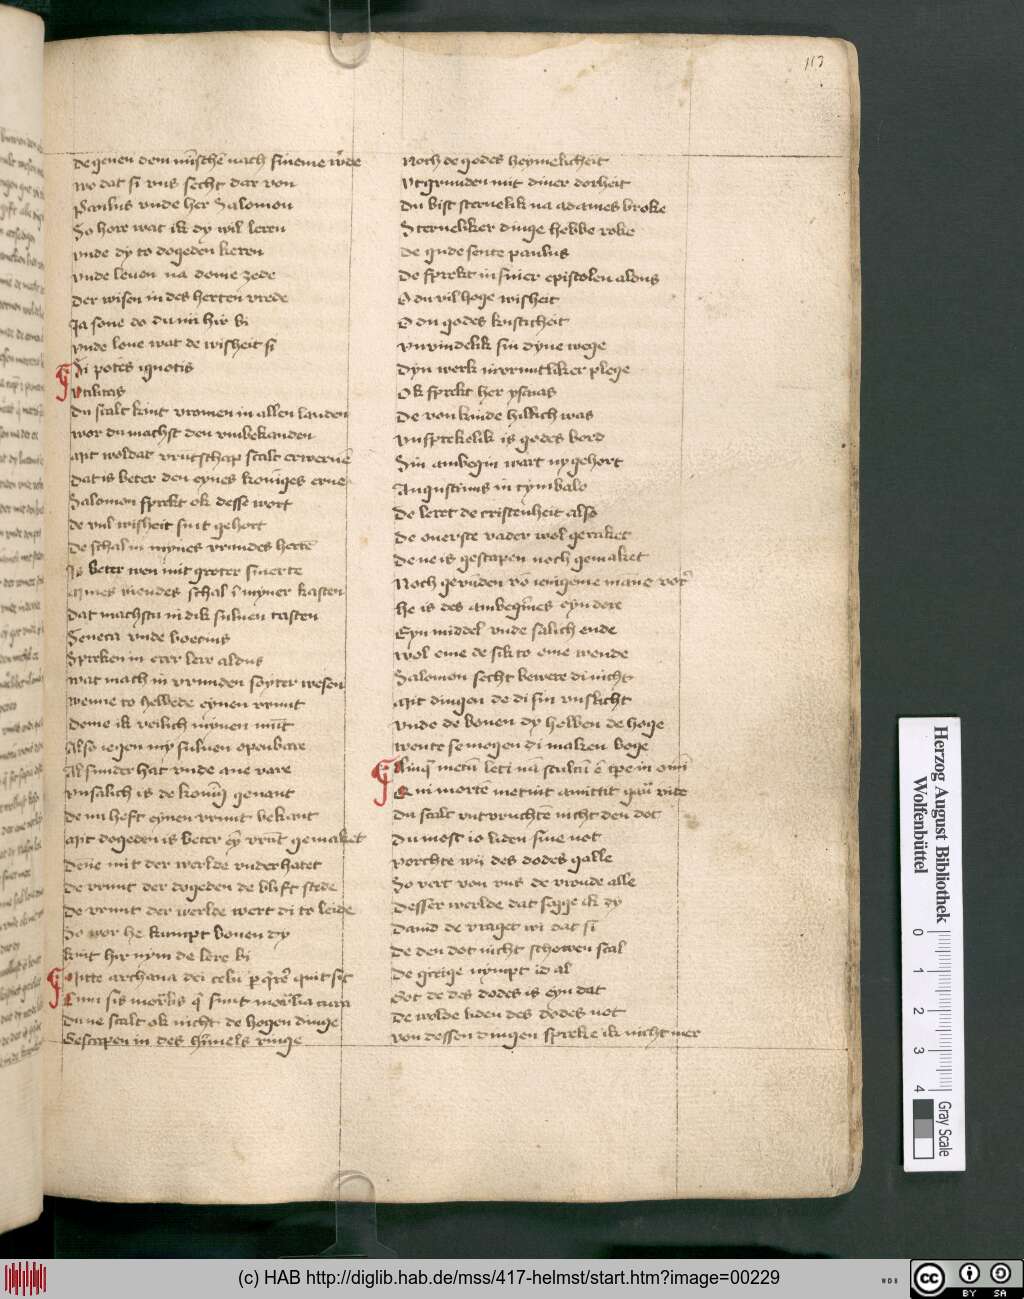 113
de genen dem mīschē nach sineme w̉de
wo dat si vns secht dar von
Paulus vnde her Salomon
So hore wat ik dy wil leren
vnde dy to dogeden keren
vnde leuen na deme zede
der wisen in des herten vrede
Ja sone do du mi hir bi
vnde loue wat de wisheit si
Si potes ignotis
vtilitas
du scalt kint vromen in allen landen
wor du machst den vmbekanden
mit woldat vrutschap scalt erweruē
dat is beter den eynes koniges erue
Salomon sprekt ok desse wort
de vul wisheit sint gehort
de schal in mynes vrundes hertē
Is beter wen mit groter smerte
mines viendes schal ī myner kasten
dat machstu in dik suluen tasten
Seneca vnde boecius
Spreken in erer lere aldus
wat mach in vrunden soyter wesen
wenne to hebbede eynen vrunt
deme ik veilich mynen mūt
Also iegen my suluen openbare
Al sunder hat vnde ane vare
vnsalich is de konig genant
de nu heft eynen vrunt bekant
mit dogeden is beter eȳ vrūt gemaket
denne mit der werlde vnderhatet
de vrunt der dogeden de blift stede
de vrunt der werlde wert di to leide
So wor he kumpt bouen dy
kint hir nym de lere bi
Mitte archana dei celū p̄ q̄rē quit sit
Cum sis mortal̄s q̄ sunt mortalia cura
du ne scalt ok nicht de hogen dinge
Gescapen in des himels ringe
Noch de godes heymelicheit
vtgrunden mit diner dorheit
du bist steruelik na adames broke
Sterueliker dinge hebbe roke
de gude sente paulus
de sprekt in siner epistolen aldus
O du vil hoge wisheit
O du godes kunsticheit
vnvindelik sin dyne wege
dyn werk invruntliker plege
Ok sprekt her ysaias
de von kinde hillich was
vnsprekelik is godes bord
Sin ambegin wart ny gehort
Augustinus in cymbalo
de leret de cristenheit also
de ouerste vader wol geraket
de ne is gescapen noch gemaket
Noch geuūden vō ienigeme mane vor
he is des ambeginnes eyn dore
Eyn middel vnde salich ende
wol eme de sik to eme wende
Salomon secht bewere di nicht
mit dingen de di sin vnslicht
vnde de bouen dy hebben de hoge
wente se mogen di maken boge
Linq̄ metū leti nā stultū ē tp̄e in omi
Qui mortē metuit amittit gaū vite
du scalt vntvruchtē nicht den dot
du most io liden sine not
vorchte wij des dodes galle
So vert von vns de vroude alle
desser werlde dat sage ik dy
dauid de vraget wi dat si
de den dot nicht schowen scal
de girige nympt id al
Got de des dodes is eyn dat
de wolde liden des dodes not
von dessen dingen spreke ik nicht mer
Herzog August Bibliothek
Wolfenbüttel
0 1 2 3 4
Gray Scale
(c) HAB http://diglib.hab.de/mss/417-helmst/start.htm?image=00229
WDB
cc BY SA